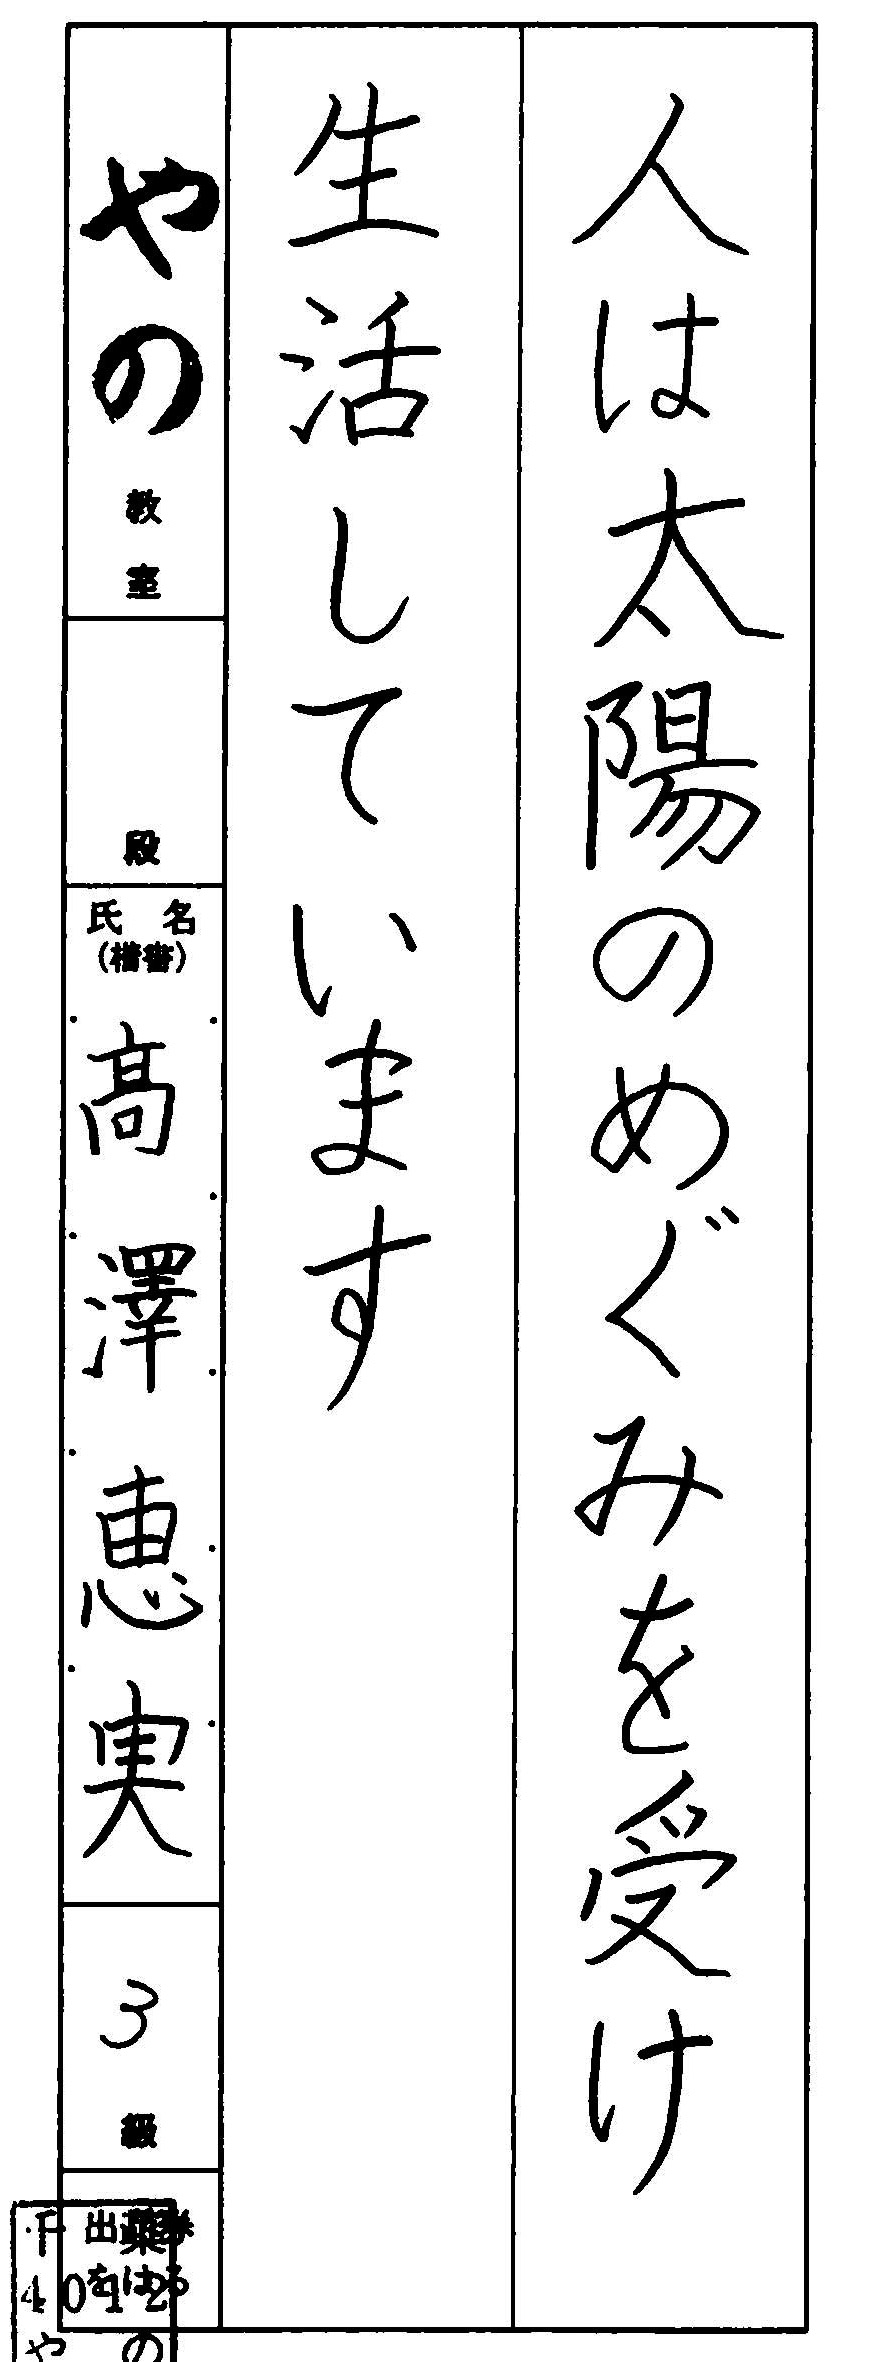 人は太陽のめぐみを受け
生活しています
やの教室
段
氏名
(楷書)
高澤恵実
3級
出
をはる
千葉
4012
やの